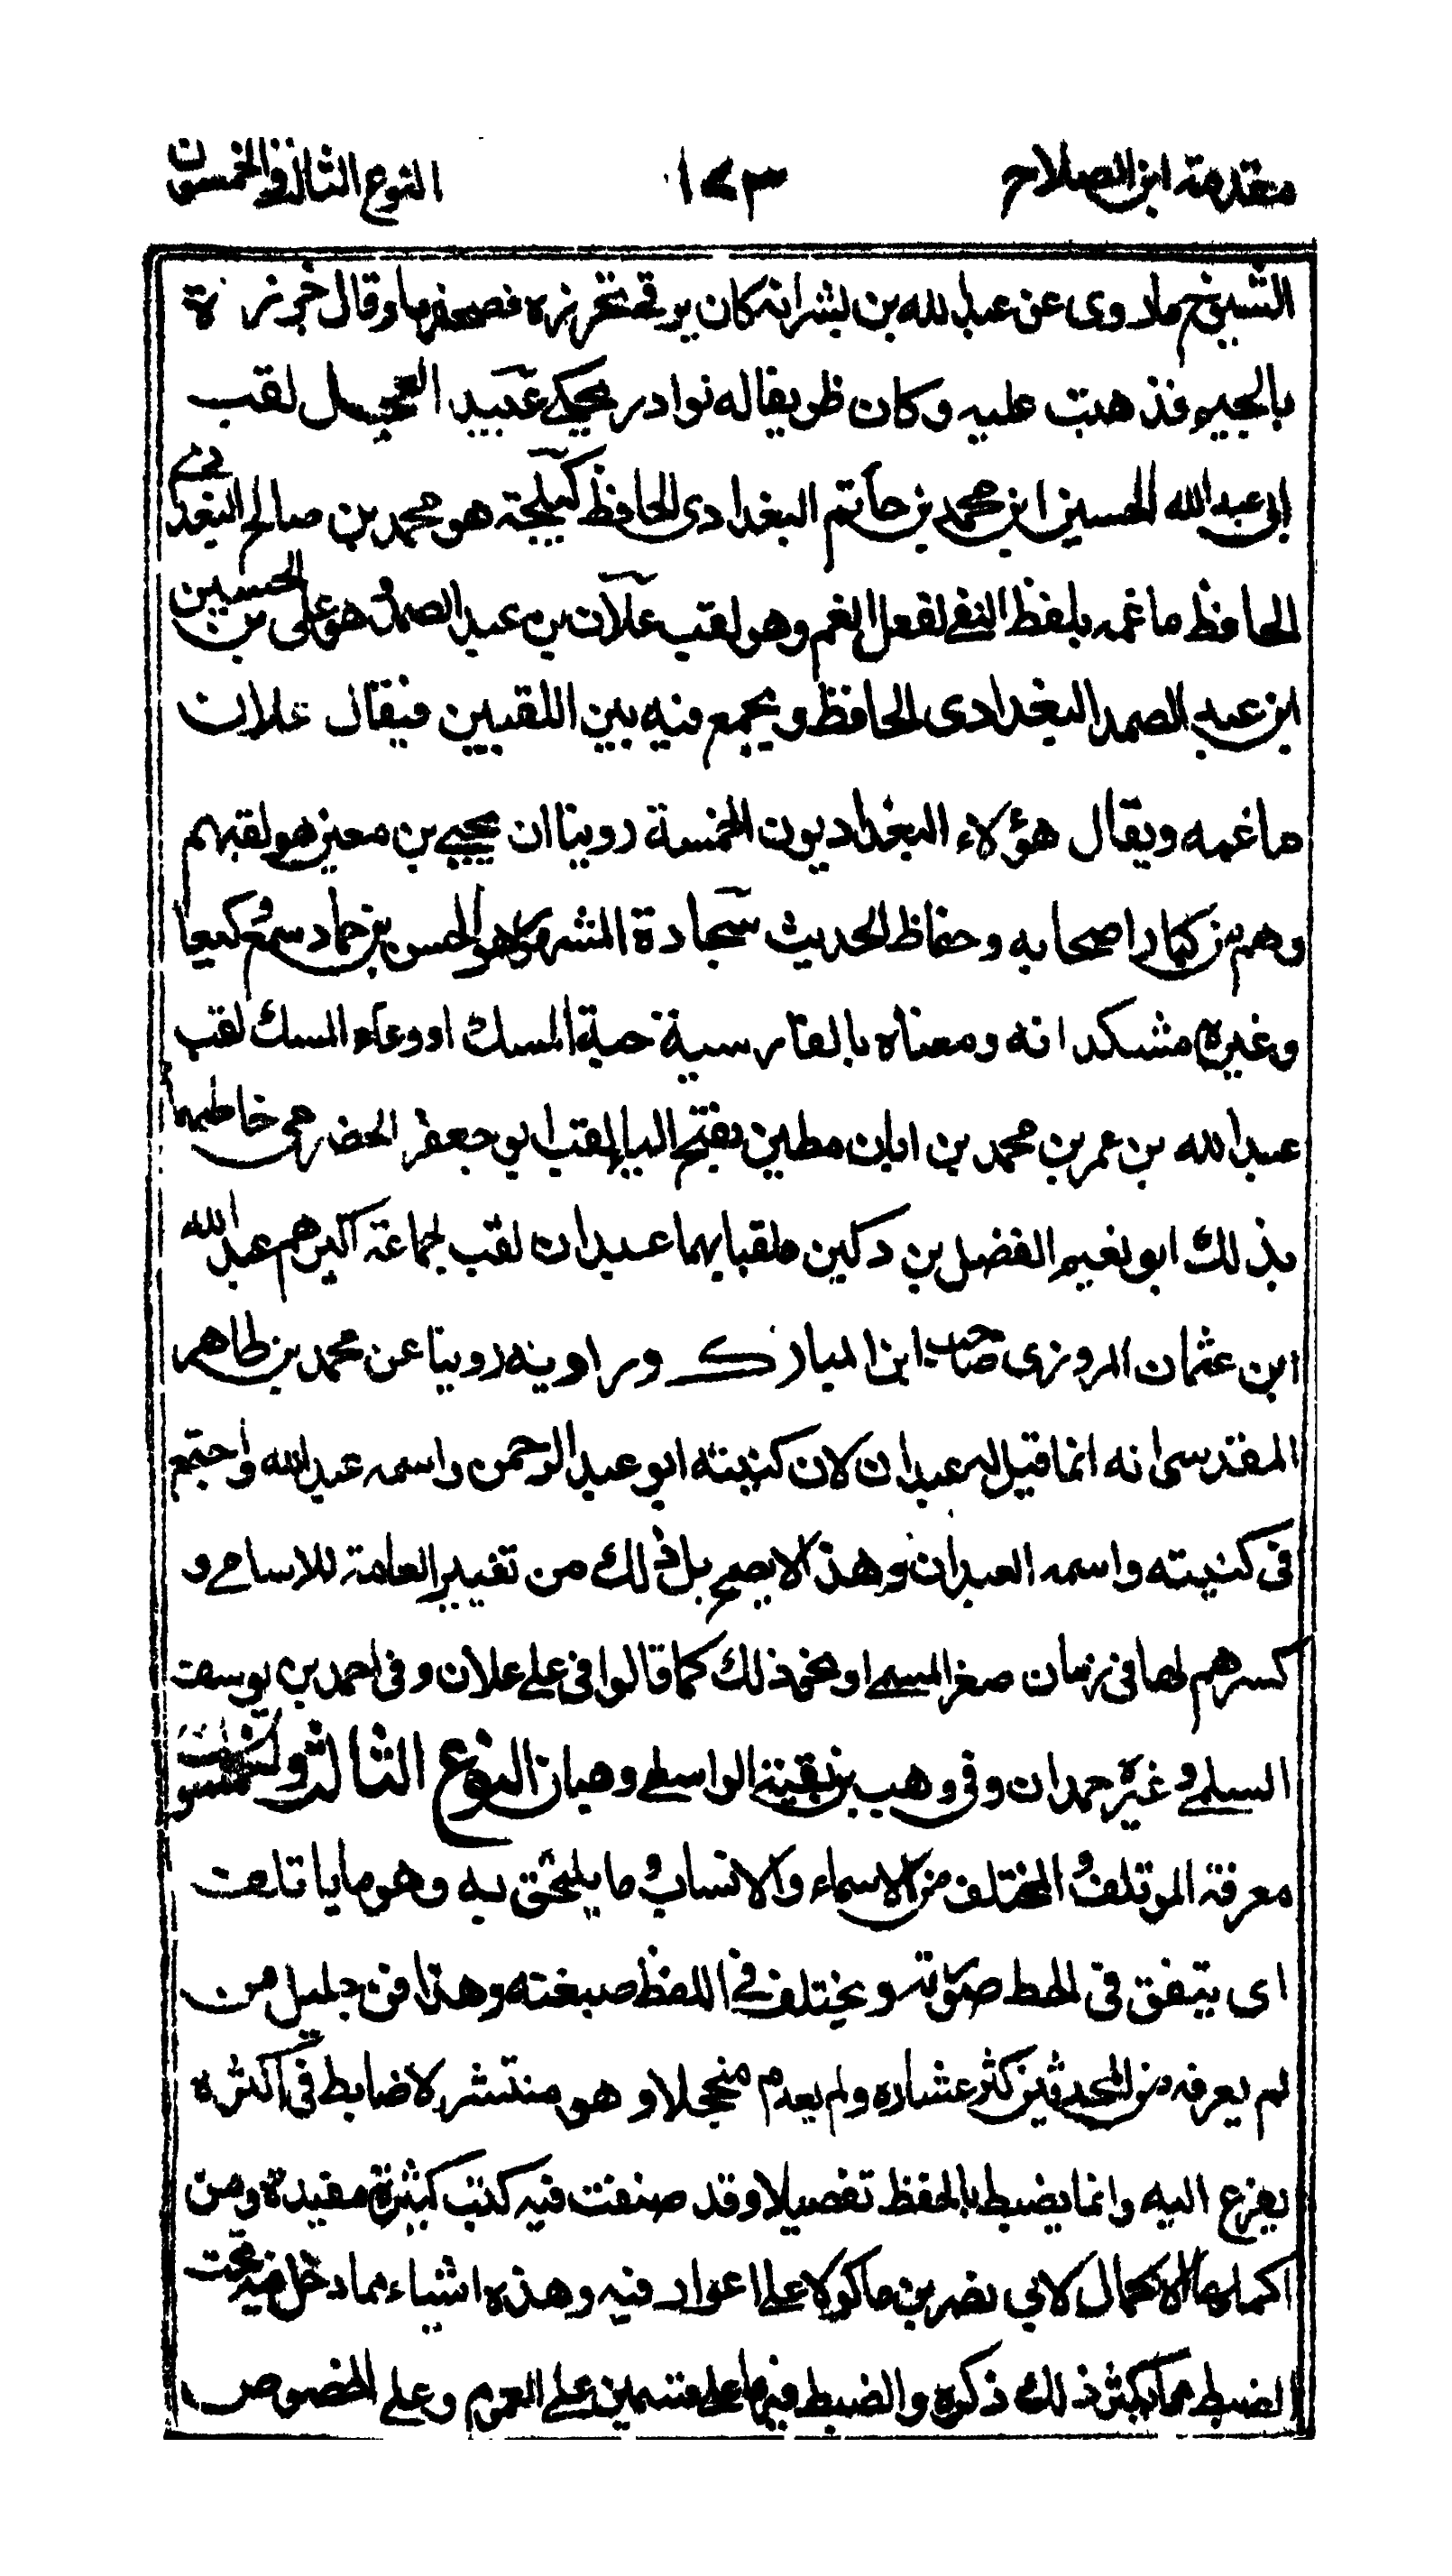 مقدمة ابن الصلاح ١٧٣ النوع الثالث والخمسون
الشيخ ما روى عن عبد الله بن بشر انه كان يرقى بخرزة فصحفها وقال خرزة
بالجيم فذهبت عليه وكان ظريفا له نوادر يحكى عبيد العجل لقب
ابى عبد الله الحسين ابن محمد بن حاتم البغدادى الحافظ كيلجة هو محمد بن صالح البغدادى
الحافظ ماغمه بلفظ النفى لفعل الغم وهو لقب علان بن عبد الصمد وهو على بن الحسين
ابن عبد الصمد البغدادى الحافظ ويجمع فيه بين اللقبين فيقال علان
ماغمه ويقال هؤلاء البغداديون الخمسة روينا ان يحيى بن معين هو لقبهم
وهم من كبار اصحابه وحفاظ الحديث سجادة المشهور هو الحسن بن حماد سمع وكيعا
وغيره مشكدانه ومعناه بالفارسية حبة المسك او وعاء المسك لقب
عبد الله بن عمر بن محمد بن ابان مطين بفتح اليا لقب ابو جعفر الحضرمى خاطبهما
بذلك ابو نعيم الفضل بن دكين فلقبا بهما عبدان لقب لجماعة اكبرهم عبد الله
ابن عثمان المروزى صاحب ابن المبارك وراويه روينا عن محمد بن طاهر
المقدسى انه انما قيل له عبدان لان كنيته ابو عبد الرحمن واسمه عبد الله واجتمع
فى كنيته واسمه العبدان وهذا لا يصح بل ذلك من تغيير العامة للاسامى و
كسرهم لها فى زمان صغر المسمى او نحو ذلك كما قالوا فى على علان وفى احمد بن يوسف
السلمى وغيره حمدان وفى وهب بن بقية الواسطى وهبان النوع الثالث والخمسون
معرفة الموتلف والمختلف من الاسماء والانساب وما يلتحق به وهو ما ياتلف
اى يتفق فى الخط صورته ويختلف فى اللفظ صيغته وهذا فن جليل من
لم يعرفه من المحدثين كثر عثاره ولم يعدم مخجلا وهو منتشر لا ضابط فى اكثره
يفزع اليه وانما يضبط بالحفظ تفصيلا وقد صنفت فيه كتب كثيرة مفيدة ومن
اكملها الاكمال لابى نصر بن ماكولا على اعواز فيه وهذه اشياء مما دخل فيه تحت
الضبط مما يكثر ذلك ذكره والضبط فيها على قسمين على العموم وعلى الخصوص